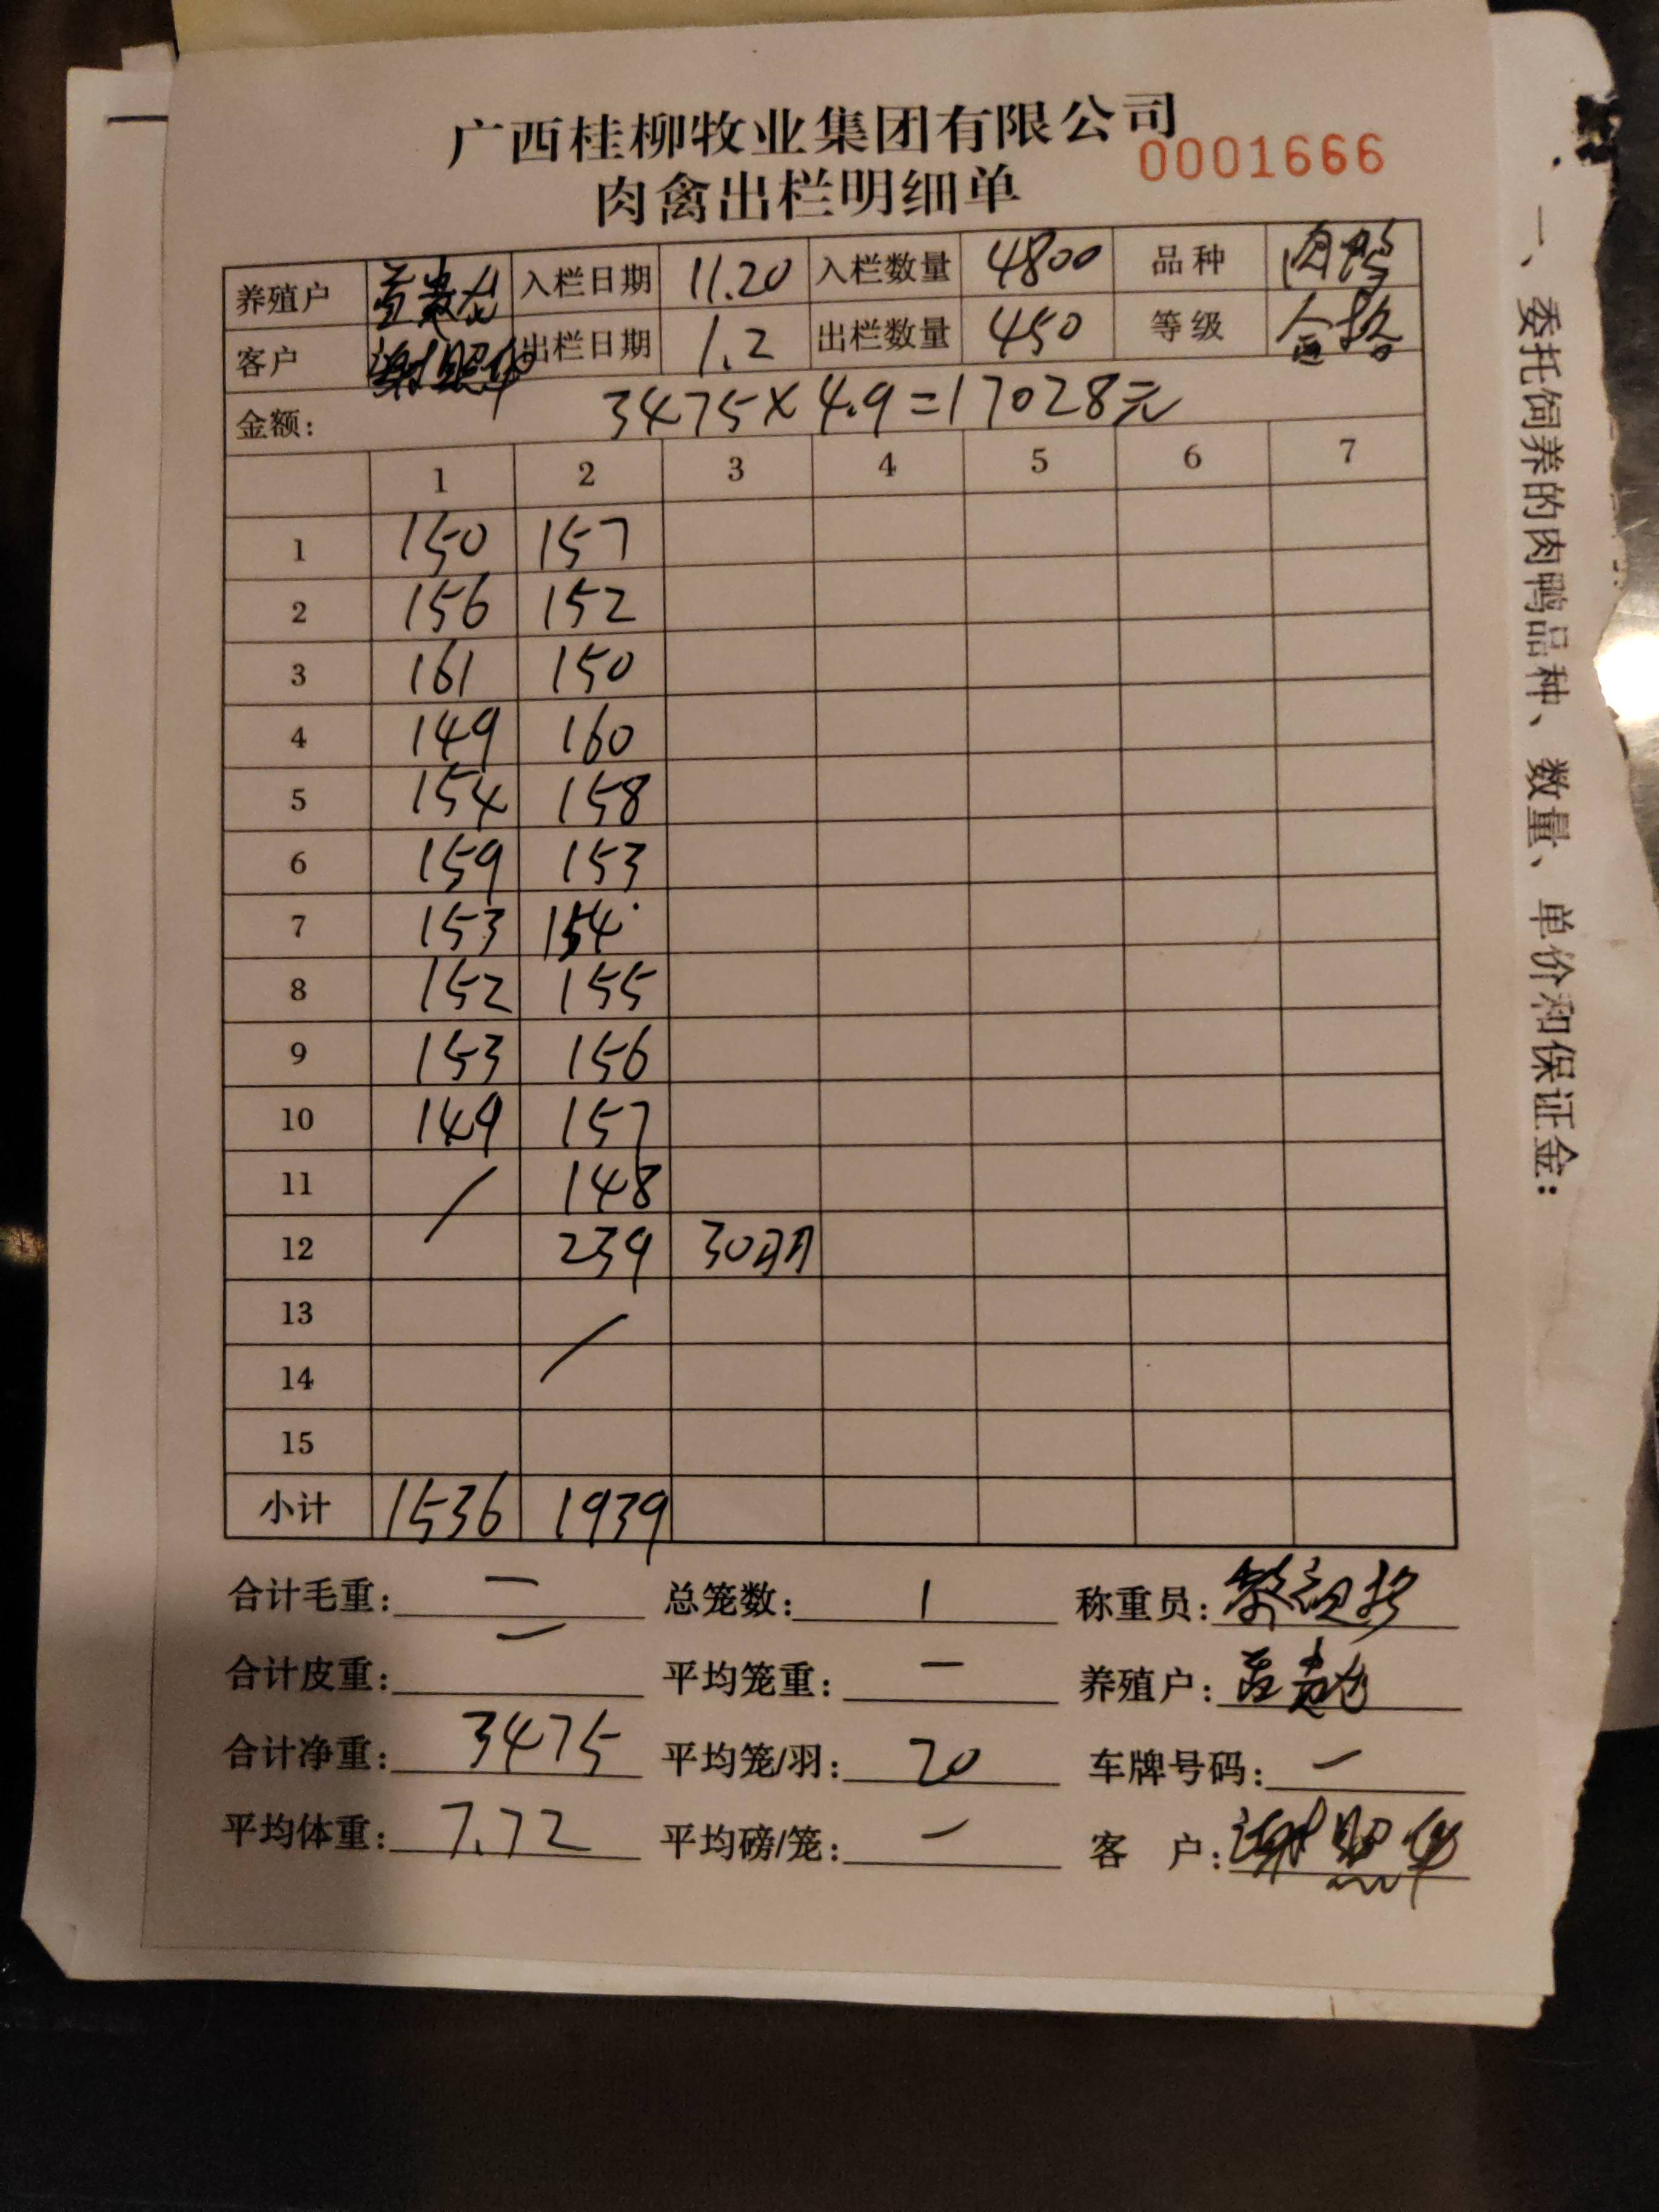 广西桂柳牧业集团有限公司
0001666
肉禽出栏明细单
养殖户 入栏日期 11.20 入栏数量 4800 品种 肉鸭
客户 谢照华 出栏日期 1.2 出栏数量 450 等级 合格
金额: 3475×4.9=17028元
1 2 3 4 5 6 7
1 150 157
2 156 152
3 161 150
4 149 160
5 154 158
6 159 153
7 153 154
8 152 155
9 153 156
10 149 157
11 / 148
12 239 30羽
13 /
14
15
小计 1536 1939
合计毛重: 一 总笼数: 1 称重员:
合计皮重: 一 平均笼重: 一 养殖户:
合计净重: 3475 平均笼/羽: 20 车牌号码: 一
平均体重: 7.72 平均磅/笼: 一 客 户: 谢照华
一、委托饲养的肉鸭品种、数量、单价和保证金: